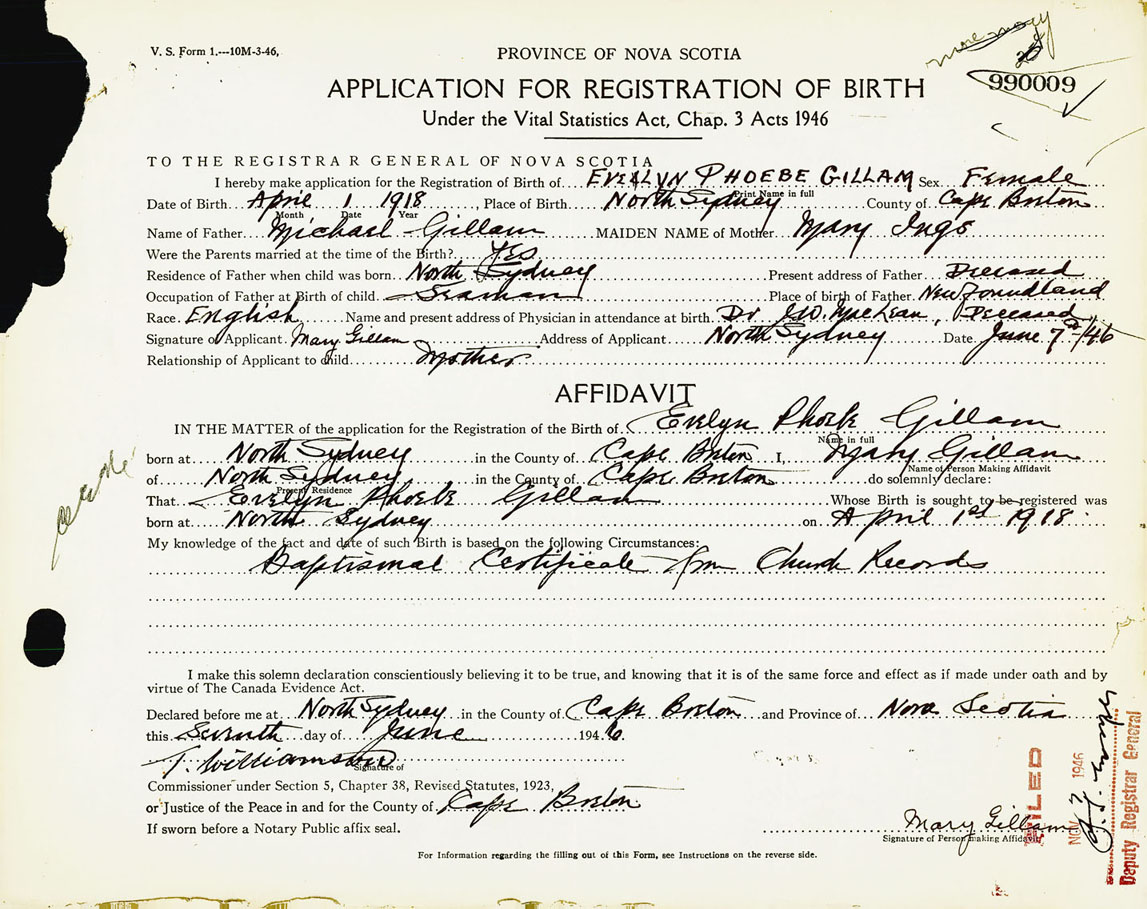 V. S. Form 1.---10M-3-46,
PROVINCE OF NOVA SCOTIA
990009
APPLICATION FOR REGISTRATION OF BIRTH
Under the Vital Statistics Act, Chap. 3 Acts 1946
TO THE REGISTRA R GENERAL OF NOVA SCOTIA
I hereby make application for the Registration of Birth of EVERLYN PHOEBE GILLAM Sex Female
Print Name in full
Date of Birth April 1 1918, Place of Birth North Sydney County of Cape Breton
Month Date Year
Name of Father Michael Gillam MAIDEN NAME of Mother Mary Ings
Were the Parents married at the time of the Birth? Yes
Residence of Father when child was born North Sydney Present address of Father Deceased
Occupation of Father at Birth of child Seaman Place of birth of Father Newfoundland
Race English Name and present address of Physician in attendance at birth Dr. J.W. MacLean, Deceased
Signature of Applicant Mary Gillam Address of Applicant North Sydney Date June 7th/46
Relationship of Applicant to child Mother
AFFIDAVIT
IN THE MATTER of the application for the Registration of the Birth of Evelyn Phoebe Gillam
Name in full
born at North Sydney in the County of Cape Breton I, Mary Gillam
Name of Person Making Affidavit
of North Sydney in the County of Cape Breton do solemnly declare:
Present Residence
That Evelyn Phoebe Gillam Whose Birth is sought to be registered was
born at North Sydney on April 1st 1918
My knowledge of the fact and date of such Birth is based on the following Circumstances:
Baptismal Certificate from Church Records
I make this solemn declaration conscientiously believing it to be true, and knowing that it is of the same force and effect as if made under oath and by
virtue of The Canada Evidence Act.
Declared before me at North Sydney in the County of Cape Breton and Province of Nova Scotia
this Seventh day of June 1946
T. Williamson
Signature of
Commissioner under Section 5, Chapter 38, Revised Statutes, 1923,
or Justice of the Peace in and for the County of Cape Breton
If sworn before a Notary Public affix seal.
Mary Gillam
Signature of Person making Affidavit
For Information regarding the filling out of this Form, see Instructions on the reverse side.
FILED
NOV 7 1946
Deputy Registrar General